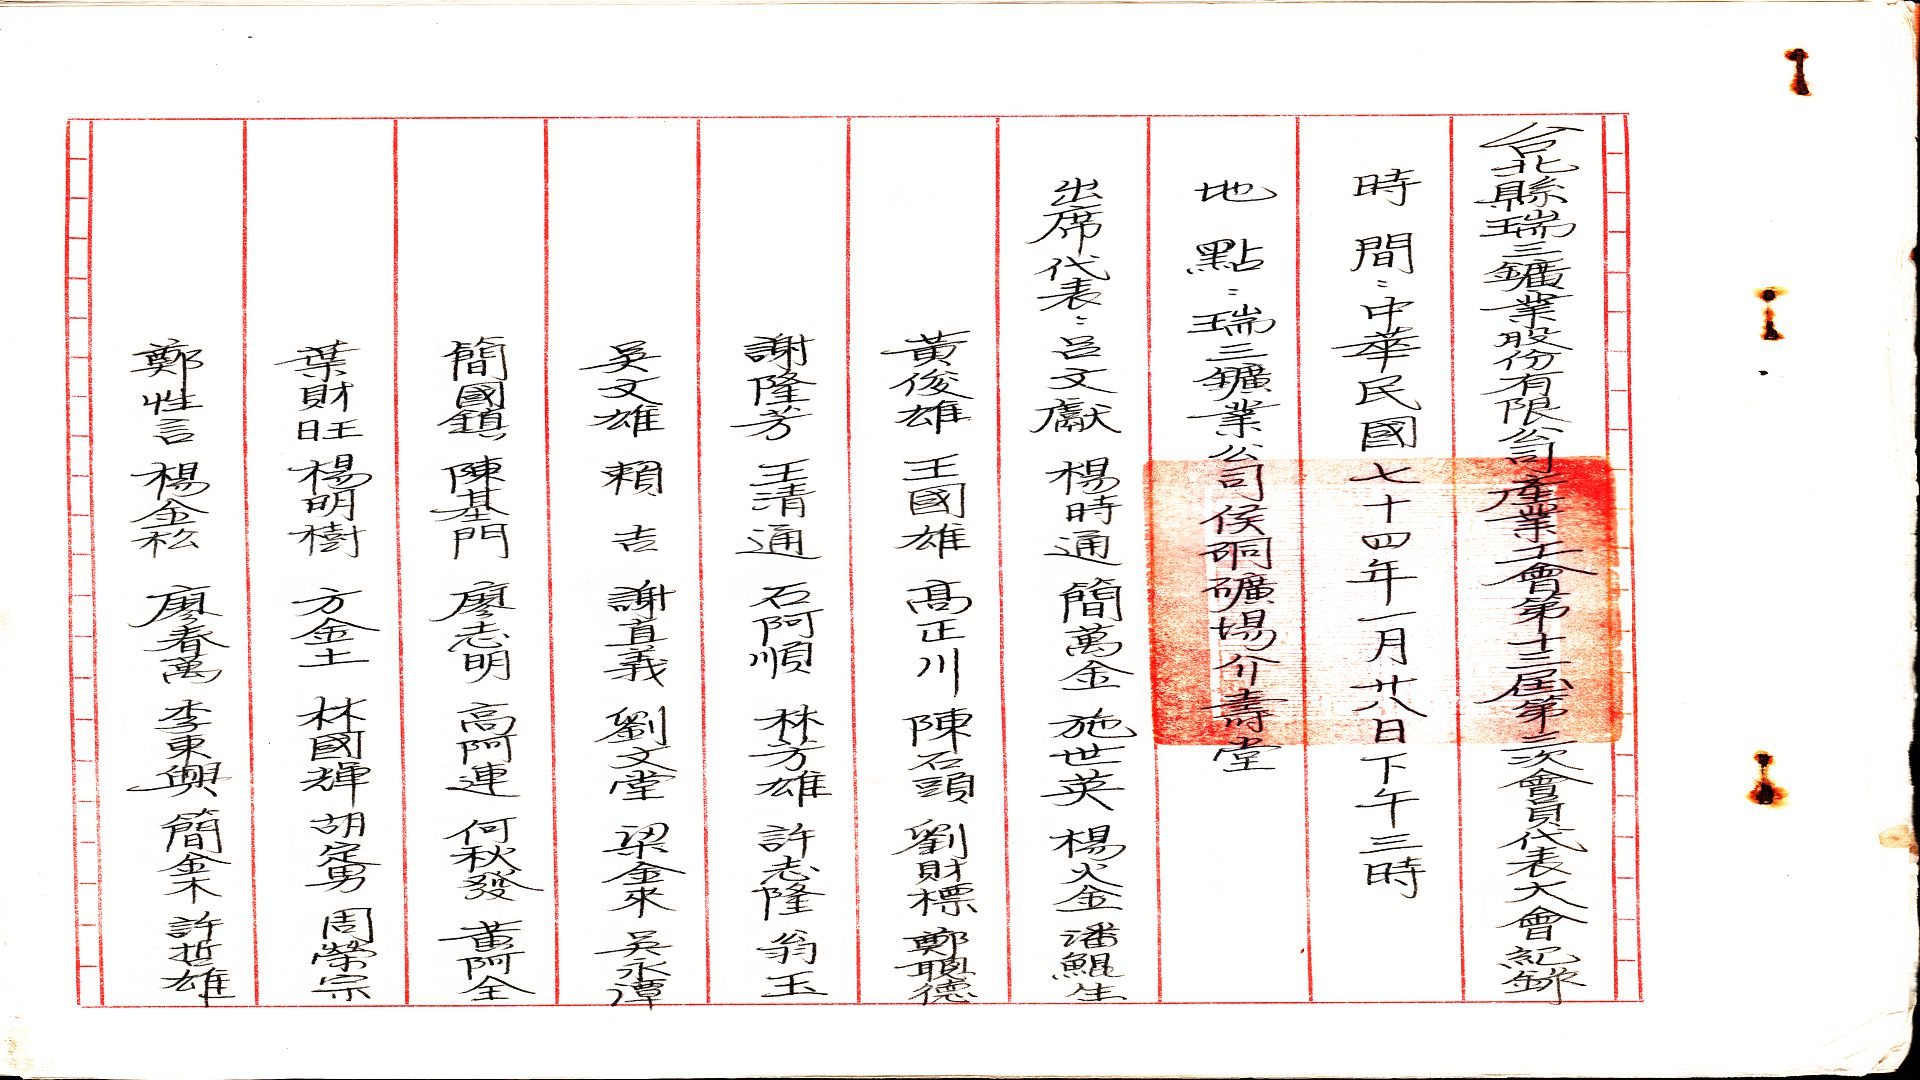 台北縣瑞三鑛業股份有限公司產業工會第十三屆第二次會員代表大會紀錄
時間：中華民國七十四年一月廿八日下午三時
地點：瑞三鑛業公司侯硐礦場介壽堂
出席代表：呂文獻 楊時通 簡萬金 施世英 楊火金 潘鯤生
黃俊雄 王國雄 高正川 陳石頭 劉財標 鄭聰德
謝隆芳 王清通 石阿順 林方雄 許志隆 翁玉
吳文雄 賴吉 謝直義 劉文堂 梁金來 吳永潭
簡國鎮 陳基門 廖志明 高阿連 何秋發 黃阿全
葉財旺 楊明樹 方金土 林國輝 胡定勇 周榮宗
鄭性言 楊金松 廖春萬 李東興 簡金木 許哲雄